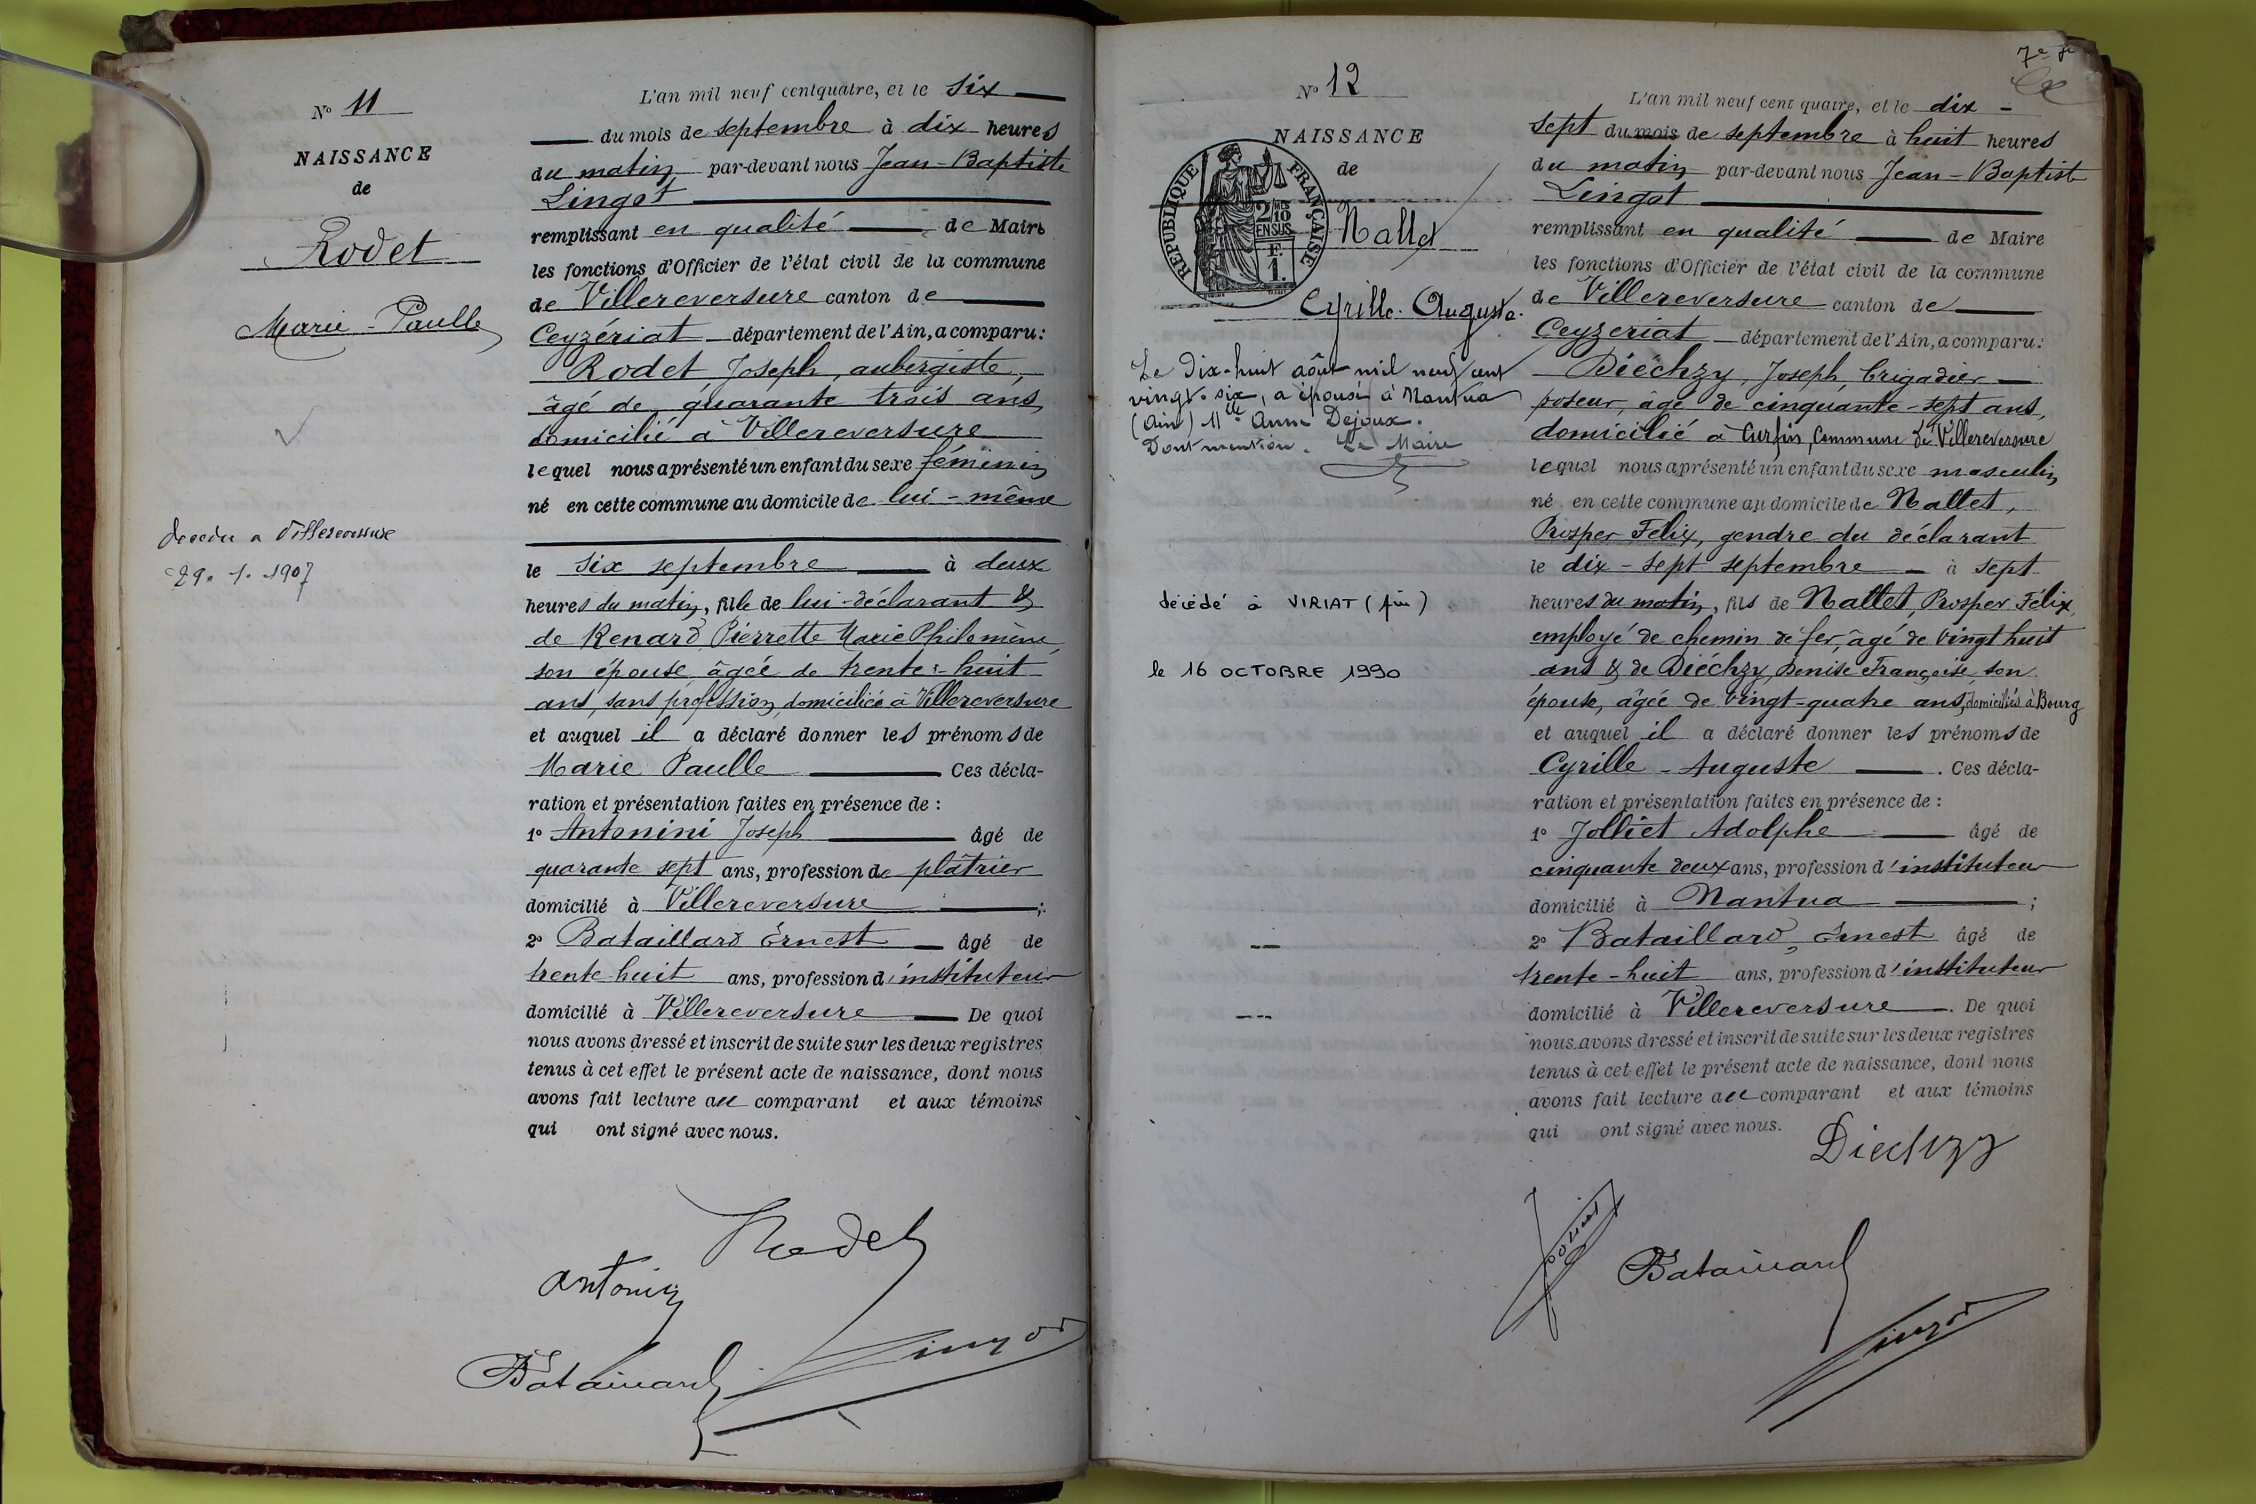 N° 11
NAISSANCE
de
Rodet
Marie-Paulle
décédée a Villereversure
29. 1. 1907
L'an mil neuf cent quatre, et le six
du mois de septembre à dix heures
du matin par-devant nous Jean-Baptiste
Lingot
remplissant en qualité de Maire
les fonctions d'Officier de l'état civil de la commune
de Villereversure canton de
Ceyzériat département de l'Ain, a comparu:
Rodet Joseph, aubergiste,
âgé de quarante trois ans,
domicilié à Villereversure
lequel nous a présenté un enfant du sexe féminin
né en cette commune au domicile de lui-même
le six septembre à deux
heures du matin, fille de lui-déclarant &
de Renard Pierrette Marie Philomène
son épouse âgée de trente-huit
ans, sans profession, domiciliée à Villereversure
et auquel il a déclaré donner les prénoms de
Marie Paulle Ces décla-
ration et présentation faites en présence de :
1° Antonini Joseph âgé de
quarante sept ans, profession de plâtrier
domicilié à Villereversure ;
2° Bataillard Ernest âgé de
trente-huit ans, profession d'instituteur
domicilié à Villereversure De quoi
nous avons dressé et inscrit de suite sur les deux registres
tenus à cet effet le présent acte de naissance, dont nous
avons fait lecture au comparant et aux témoins
qui ont signé avec nous.
Rodet
Antonini
Bataillard
Lingot
7e f
N° 12
NAISSANCE
de
REPUBLIQUE FRANÇAISE
2/10 EN SUS
F. 1.
Nallet
Cyrille-Auguste.
Le dix-huit août mil neuf cent
vingt-six, a épousé à Nantua
(Ain) Mlle Anna Dejoux.
Dont mention. Le Maire
décédé à VIRIAT (Ain)
le 16 OCTOBRE 1990
L'an mil neuf cent quatre, et le dix-
sept du mois de septembre à huit heures
du matin par-devant nous Jean-Baptiste
Lingot
remplissant en qualité de Maire
les fonctions d'Officier de l'état civil de la commune
de Villereversure canton de
Ceyzeriat département de l'Ain, a comparu:
Diéchzy, Joseph, brigadier
poseur, âgé de cinquante-sept ans,
domicilié à Curfin, Commune de Villereversure
lequel nous a présenté un enfant du sexe masculin
né en cette commune au domicile de Nallet,
Prosper Félix, gendre du déclarant
le dix-sept septembre à sept
heures du matin, fils de Nallet, Prosper Félix
employé de chemin de fer, âgé de vingt huit
ans & de Diéchzy Denise Françoise, son
épouse, âgée de vingt-quatre ans, domiciliés à Bourg
et auquel il a déclaré donner les prénoms de
Cyrille-Auguste . Ces décla-
ration et présentation faites en présence de :
1° Jolliet Adolphe âgé de
cinquante deux ans, profession d'instituteur
domicilié à Nantua ;
2° Bataillard, Ernest âgé de
trente-huit ans, profession d'instituteur
domicilié à Villereversure. De quoi
nous avons dressé et inscrit de suite sur les deux registres
tenus à cet effet le présent acte de naissance, dont nous
avons fait lecture au comparant et aux témoins
qui ont signé avec nous.
Diechzy
Jolliet
Bataillard
Lingot